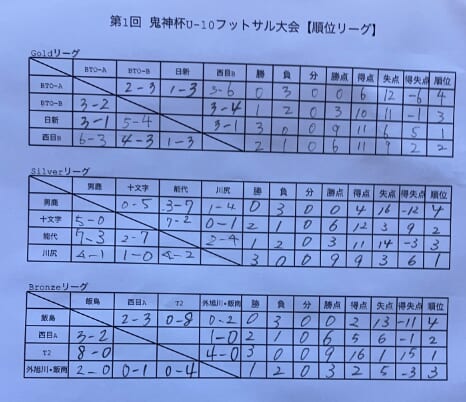 第1回 鬼神杯U-10フットサル大会【順位リーグ】
Goldリーグ
BTO-A BTO-B 日新 西目B 勝 負 分 勝点 得点 失点 得失点 順位
BTO-A 2-3 1-3 3-6 0 3 0 0 6 12 -6 4
BTO-B 3-2 3-4 1 2 0 3 10 11 -1 3
日新 3-1 5-4 3-1 3 0 0 9 11 6 5 1
西目B 6-3 4-3 1-3 2 1 0 6 11 9 2 2
Silverリーグ
男鹿 十文字 能代 川尻 勝 負 分 勝点 得点 失点 得失点 順位
男鹿 0-5 3-7 1-4 0 3 0 0 4 16 -12 4
十文字 5-0 7-2 0-1 2 1 0 6 12 3 9 2
能代 7-3 2-7 2-4 1 2 0 3 11 14 -3 3
川尻 4-1 1-0 4-2 3 0 0 9 9 3 6 1
Bronzeリーグ
飯島 西目A T2 外旭川・飯南 勝 負 分 勝点 得点 失点 得失点 順位
飯島 2-3 0-8 0-2 0 3 0 0 2 13 -11 4
西目A 3-2 1-0 2 1 0 6 5 6 -1 2
T2 8-0 4-0 3 0 0 9 16 1 15 1
外旭川・飯南 2-0 0-1 0-4 1 2 0 3 2 5 -3 3